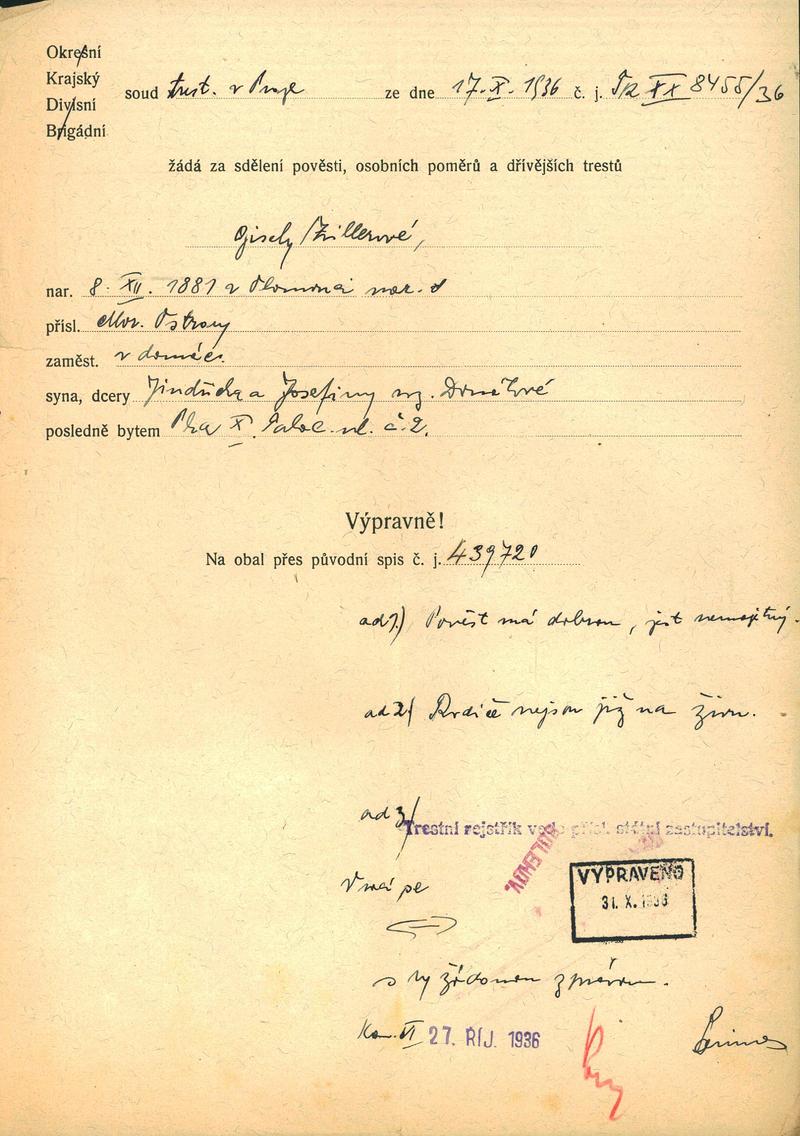 Okresní
Krajský
Divisní
Brigádní
soud trest. v Praze ze dne 17. X. 1936 č. j. Tk XX 8455/36
žádá za sdělení pověsti, osobních poměrů a dřívějších trestů
Gisely Zillerové,
nar. 8. XII. 1881 v Olomouci
přísl. Mor. Ostravy
zaměst. v domác.
syna, dcery Jindřicha a Josefiny roz. Donátové
posledně bytem Pha X. Palac. ul. č. 2.
Výpravně!
Na obal přes původní spis č. j. 439720
ad 1.) Pověst má dobrou, jest nemajetný.
ad 2) Rodiče nejsou již na živu.
ad 3/
Trestní rejstřík vede přísl. státní zastupitelství.
Vrací se
VYPRAVENO
31. X. 1936
s vyžádanou zprávou.
27. ŘÍJ. 1936